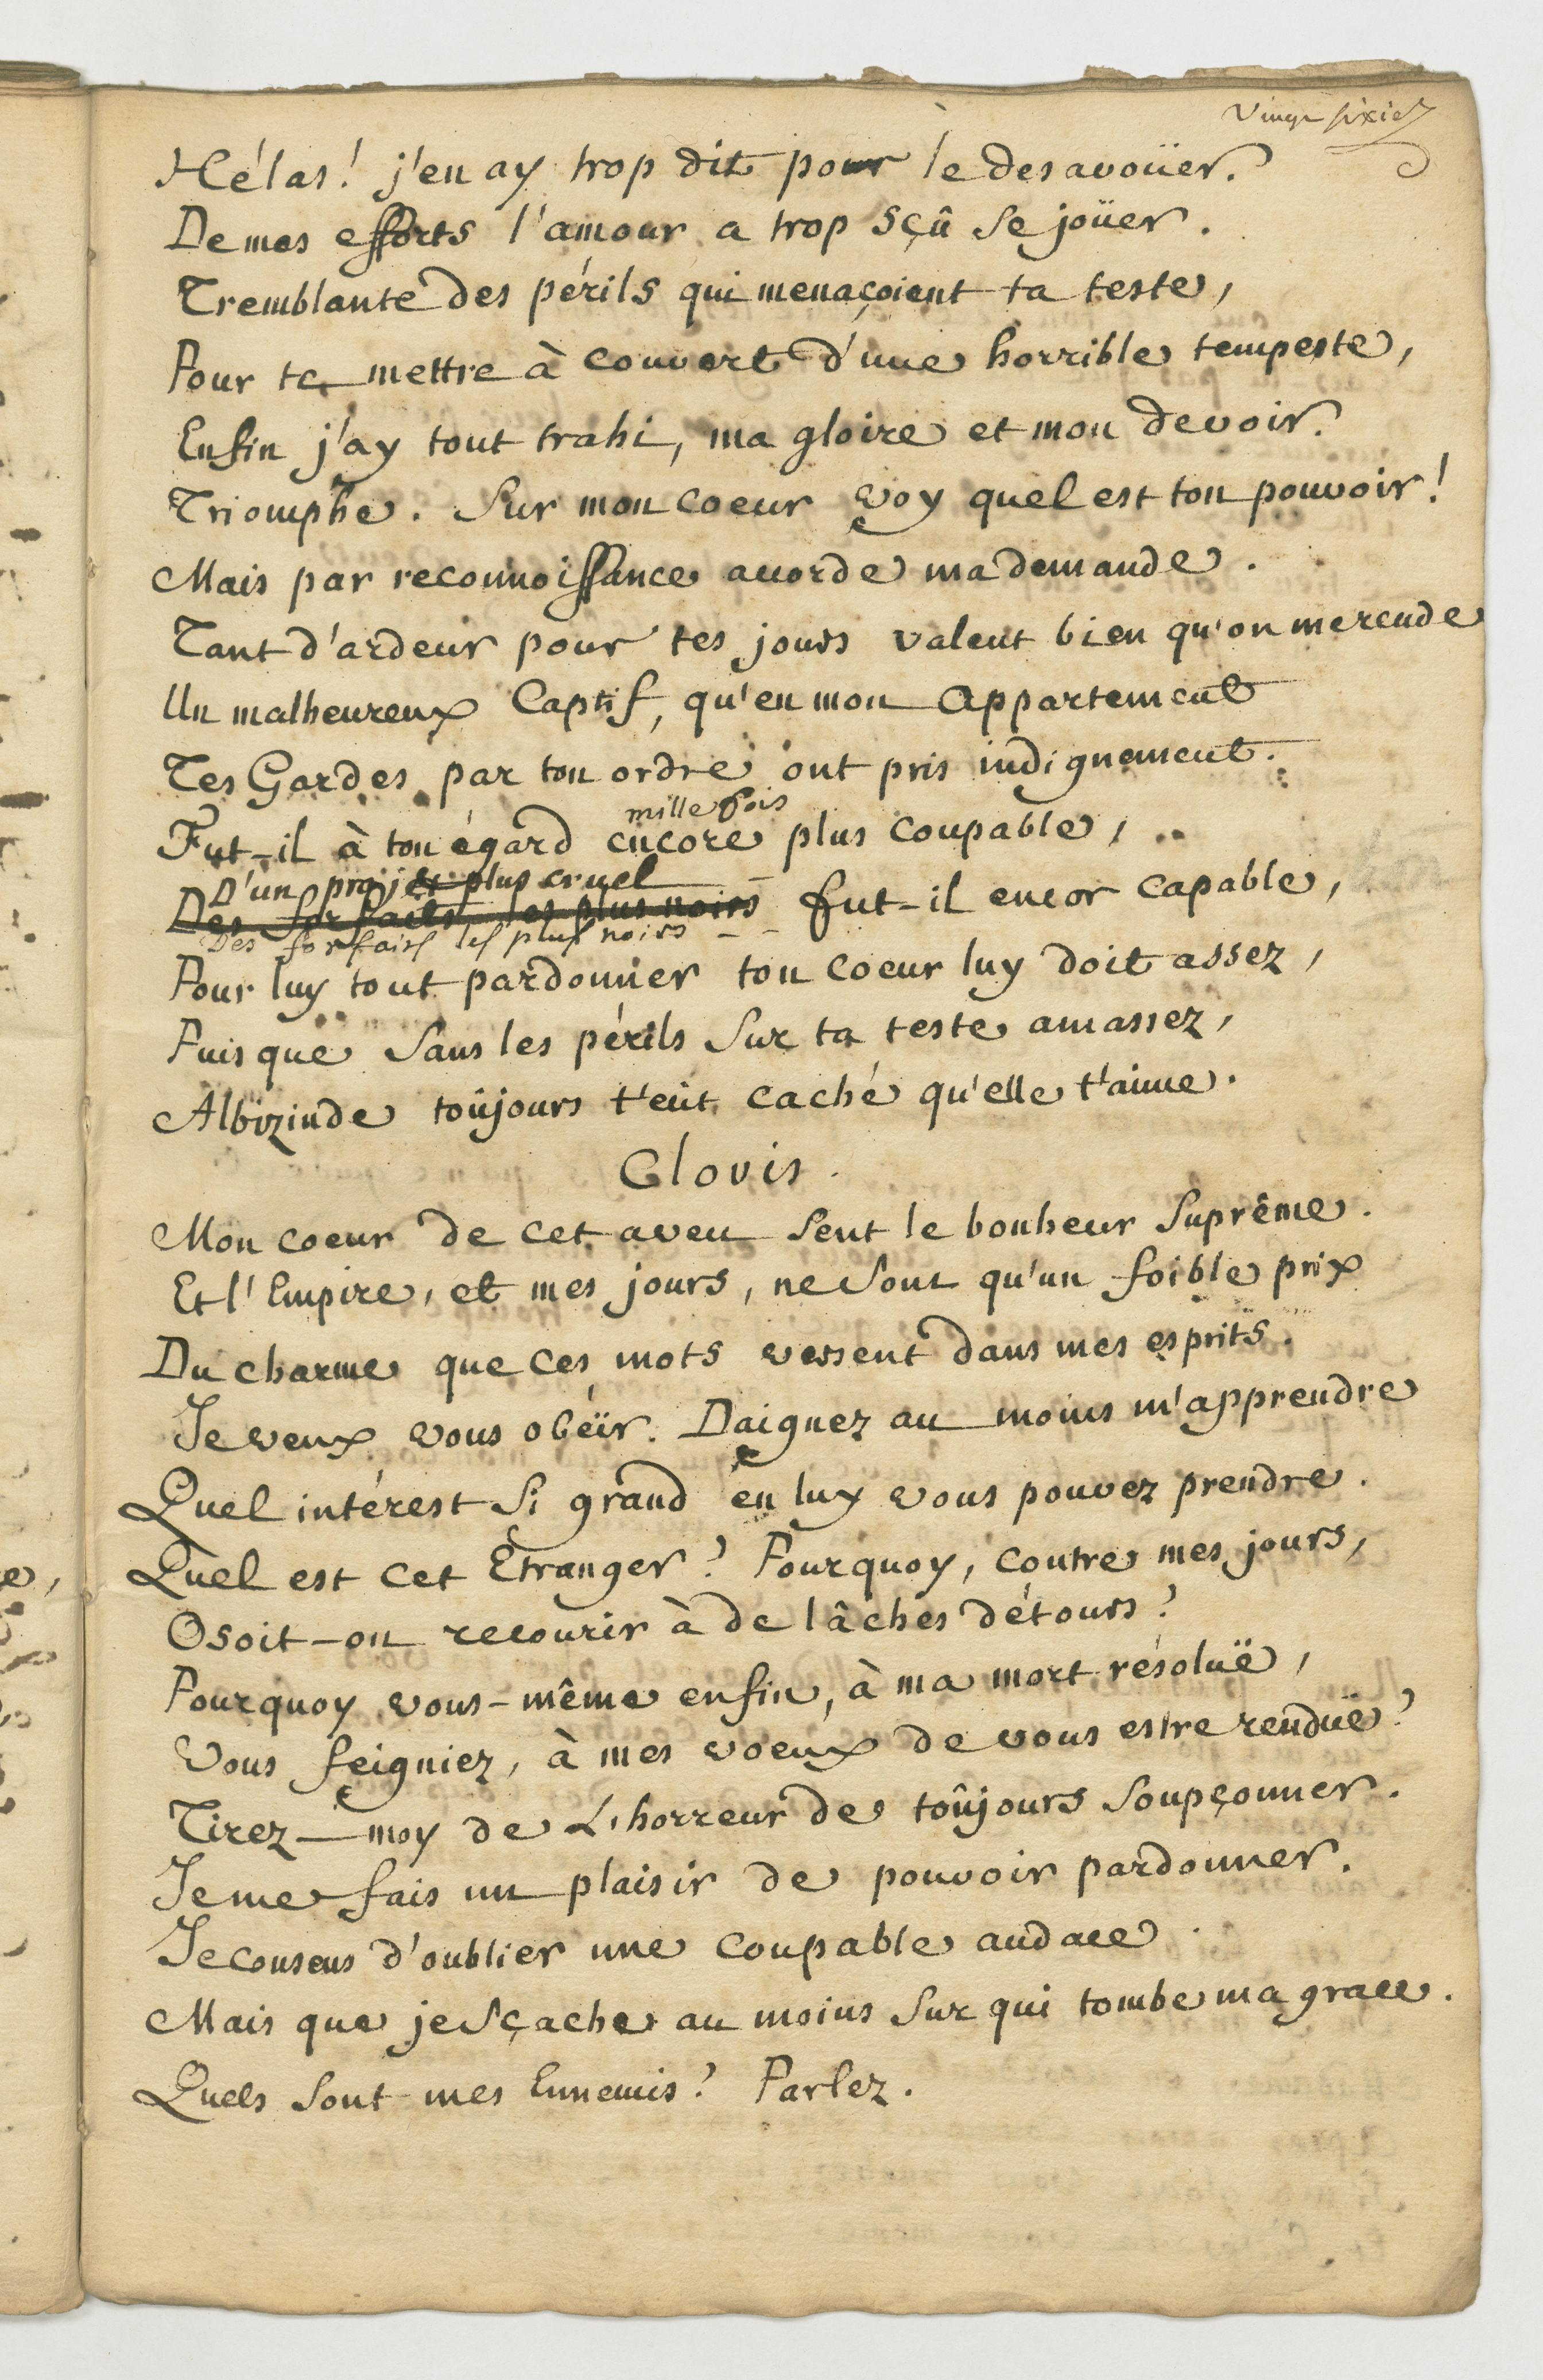 Vingt sixie
Hélas! j'en ay trop dit pour le desavoüer.
De mes efforts l'amour a trop sçû se joüer.
Tremblante des périls qui menaçoient ta teste,
Pour te mettre à couvert d'une horrible tempeste,
Enfin j'ay tout trahi, ma gloire et mon devoir.
Triomphe. Sur mon coeur voy quel est ton pouvoir!
Mais par reconnoissance accorde ma demande.
Tant d'ardeur pour tes jours valent bien qu'on me rende
Un malheureux Captif, qu'en mon Appartement
Tes Gardes par ton ordre ont pris indignement.
mille fois
Fut-il à ton égard encore plus coupable,
D'un projet plus cruel
Des forfaits les plus noirs fut-il encor capable,
Des forfaits les plus noirs
Pour luy tout pardonner ton coeur luy doit assez,
Puisque sans les périls sur ta teste amassez,
Albizinde toûjours t'eût caché qu'elle t'aime.
Clovis.
Mon coeur de cet aveu sent le bonheur suprême.
Et l'Empire, et mes jours, ne sont qu'un foible prix
Du charme que ces mots versent dans mes esprits.
Je veux vous obéïr. Daignez au moins m'apprendre
Quel intérest si grand en luy vous pouvez prendre.
Quel est cet Etranger? Pourquoy, contre mes jours,
Osoit-on recourir à de lâches détours?
Pourquoy vous-même enfin, à ma mort résoluë,
Vous feigniez, à mes voeux de vous estre renduë?
Tirez-moy de L'horreur de toûjours soupçonner.
Je me fais un plaisir de pouvoir pardonner.
Je consens d'oublier une coupable audace.
Mais que je sçache au moins sur qui tombe ma grace.
Quels sont mes Ennemis? Parlez.